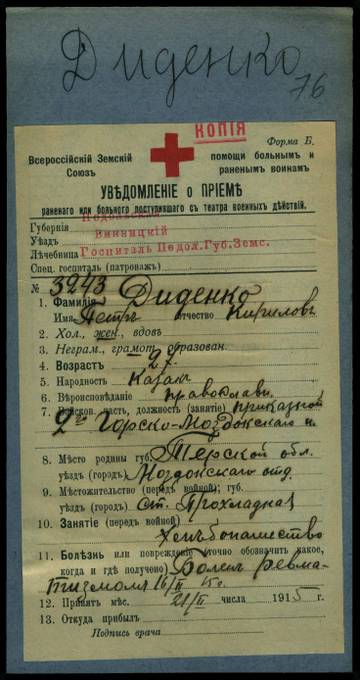 Диденко
76
КОПІЯ
Форма Б.
Всероссійскій Земскій Союзъ
помощи больнымъ и раненымъ воинамъ
УВѢДОМЛЕНІЕ о ПРІЕМѢ
раненаго или больного поступившаго съ театра военныхъ дѣйствій.
Губернія Подольская
Уѣздъ Винницкій
Лѣчебница Госпиталь Подол.Губ.Земс.
Спец. госпиталь (патронаж)
№ 3243
1. Фамилія Диденко
Имя Петръ отчество Кириловъ
2. Хол., жен., вдовъ
3. Неграм., грамот., образован.
4. Возрастъ - 27.
5. Народность Казакъ
6. Вѣроисповѣданіе православн.
7. Войсков. часть, должность (занятіе) приказной
2й Горско-Моздокскаго п.
8. Мѣсто родины губ. Терской обл.
уѣздъ (городъ) Моздокскаго отд.
9. Мѣстожительство (передъ войной); губ.
уѣздъ (городъ) ст. Прохладная
10. Занятіе (передъ войной)
хлѣбопашество
11. Болѣзнь или поврежденіе (точно обозначить какое,
когда и гдѣ получено) Боленъ ревма-
тизмомъ 16/II 15г.
12. Принятъ мѣс. 21/II числа 1915 г.
13. Откуда прибылъ
Подпись врача